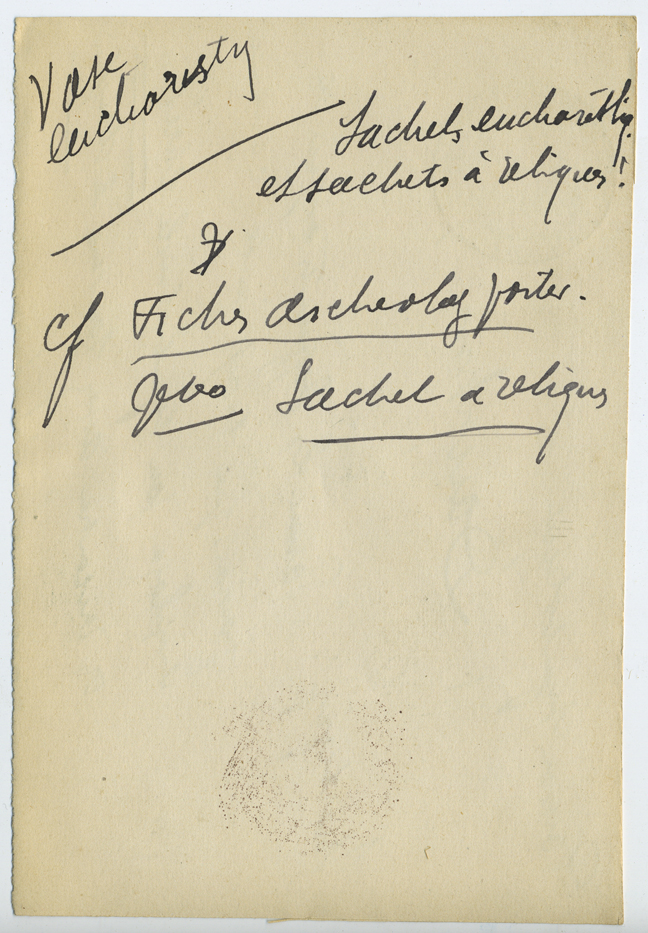 Vase
eucharisty
Sachets eucharistiq.
et sachets à reliques!
cf Fiches archeolog poster.
Sachet a reliques